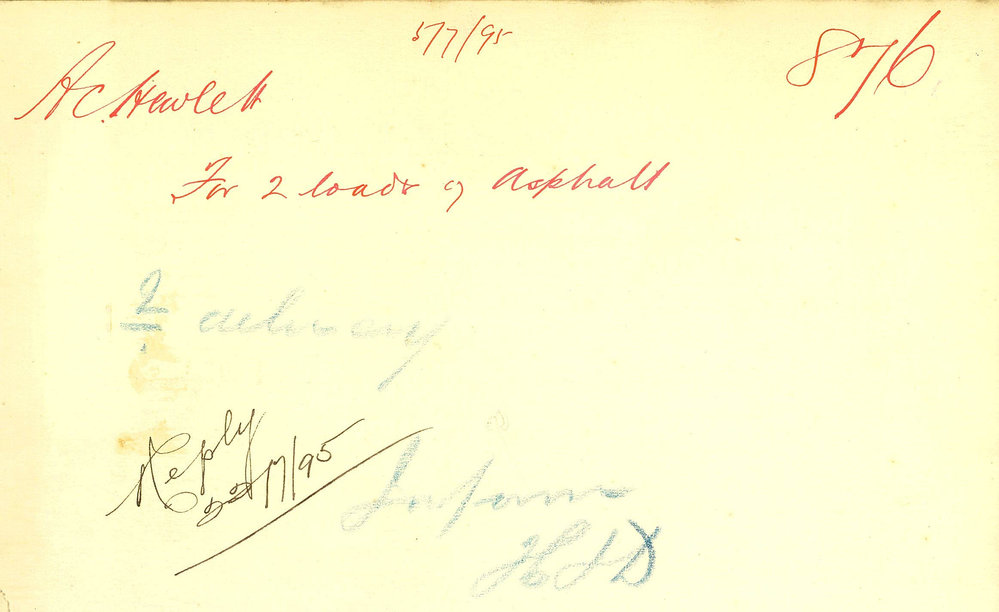 5/7/95
876
A C. Hewlett
For 2 loads of Asphalt
2 delivery
Reply
22/7/95
Inform
HJD